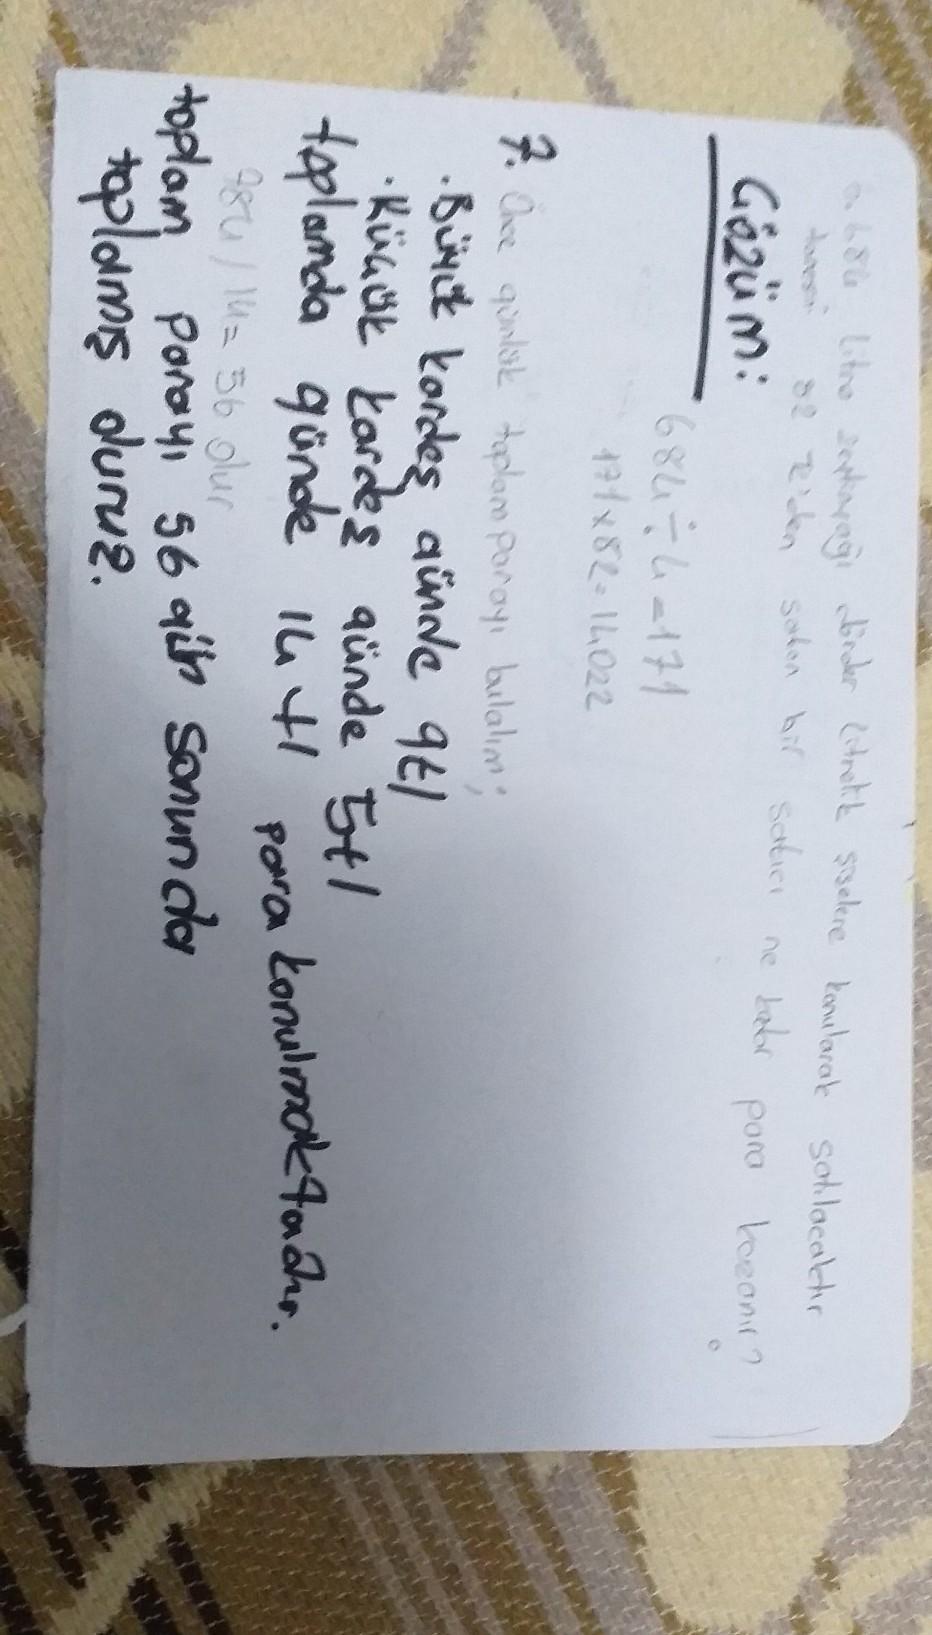 6. 684 litre zeytinyağı dörder litrelik şişelere konularak satılacaktır
tanesini 82 TL'den satan bir satıcı ne kadar para kazanır?
Çözüm:
684÷4=171
171x82=14022
7. Önce günlük toplam parayı bulalım;
.Büyük kardeş günde 9tl
.Küçük kardeş günde 5tl
toplamda günde 14 tl para konulmaktadır.
784/14=56 dır
toplam parayı 56 gün sonunda
toplamış oluruz.